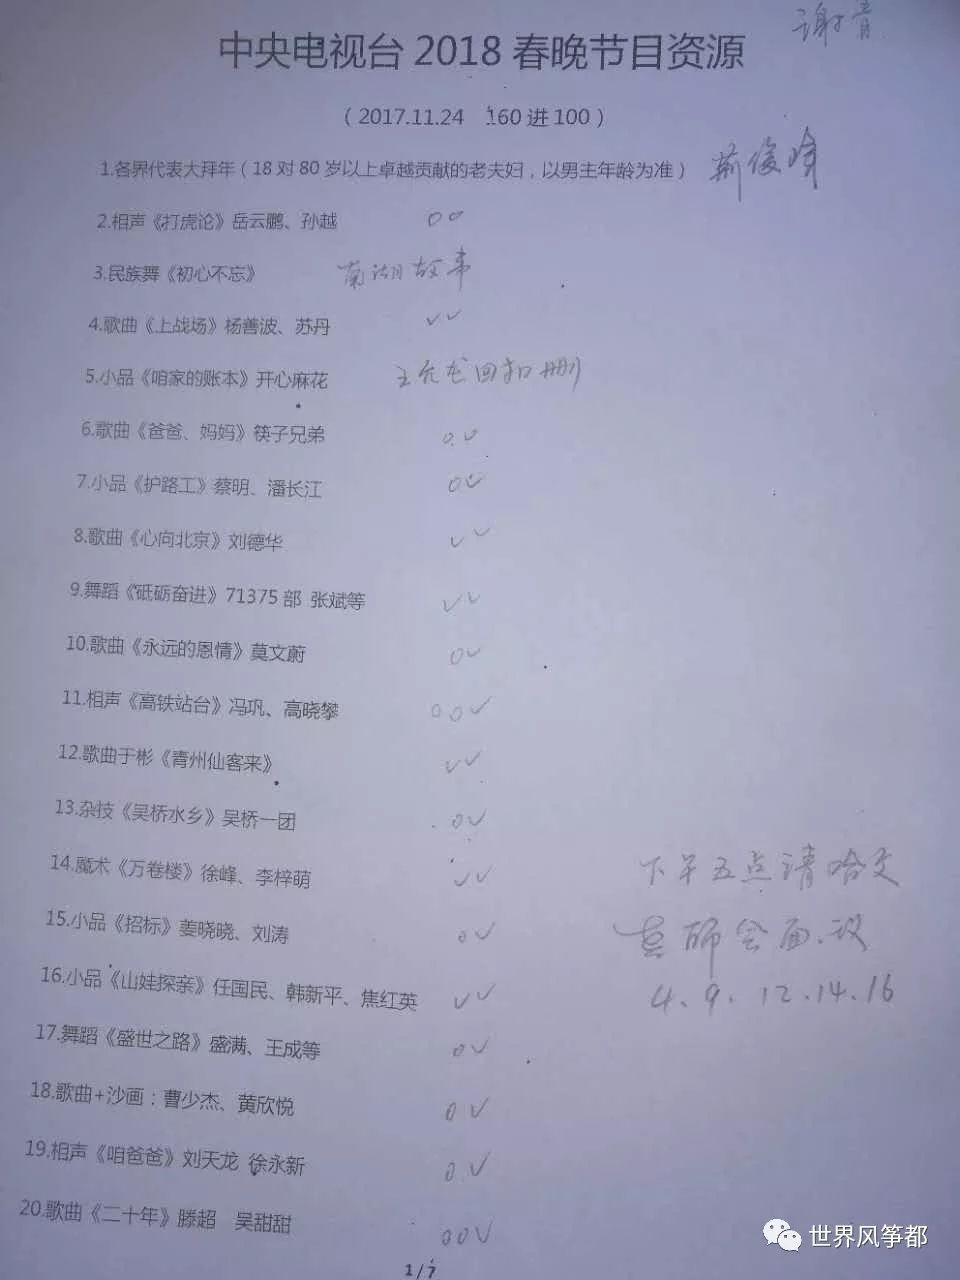 谢青
中央电视台2018春晚节目资源
（2017.11.24 160进100）
1.各界代表大拜年（18对80岁以上卓越贡献的老夫妇，以男主年龄为准）
2.相声《打虎论》岳云鹏、孙越 ○○
3.民族舞《初心不忘》 南湖故事
4.歌曲《上战场》杨善波、苏丹 ✓✓
5.小品《咱家的账本》开心麻花 回扣 删
6.歌曲《爸爸、妈妈》筷子兄弟 ○✓
7.小品《护路工》蔡明、潘长江 ○✓
8.歌曲《心向北京》刘德华 ✓✓
9.舞蹈《砥砺奋进》71375部 张斌等 ✓✓
10.歌曲《永远的恩情》莫文蔚 ○✓
11.相声《高铁站台》冯巩、高晓攀 ○○✓
12.歌曲于彬《青州仙客来》 ✓✓
13.杂技《吴桥水乡》吴桥一团 ○✓
14.魔术《万卷楼》徐峰、李梓萌 ✓✓
15.小品《招标》姜晓晓、刘涛 ○✓
16.小品《山娃探亲》任国民、韩新平、焦红英 ✓✓
17.舞蹈《盛世之路》盛满、王成等 ○✓
18.歌曲+沙画：曹少杰、黄欣悦 ○✓
19.相声《咱爸爸》刘天龙 徐永新 ○✓
20.歌曲《二十年》滕超 吴甜甜 ○○✓
下午五点请哈文
老师会面.议
4、9.12.14.16
1/7
世界风筝都